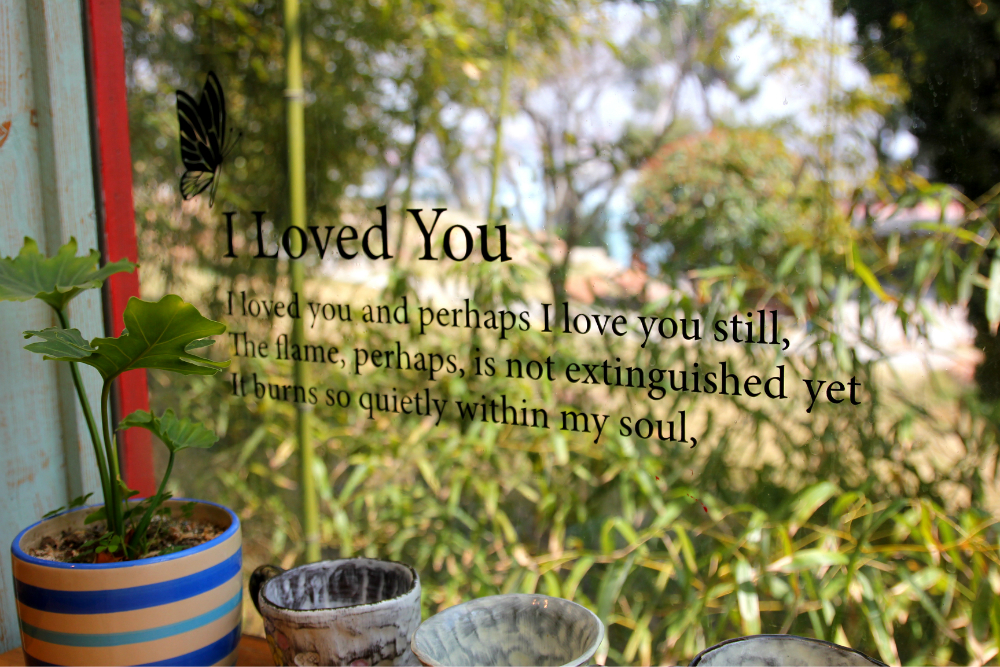 I Loved You
I loved you and perhaps I love you still,
The flame, perhaps, is not extinguished yet
It burns so quietly within my soul,